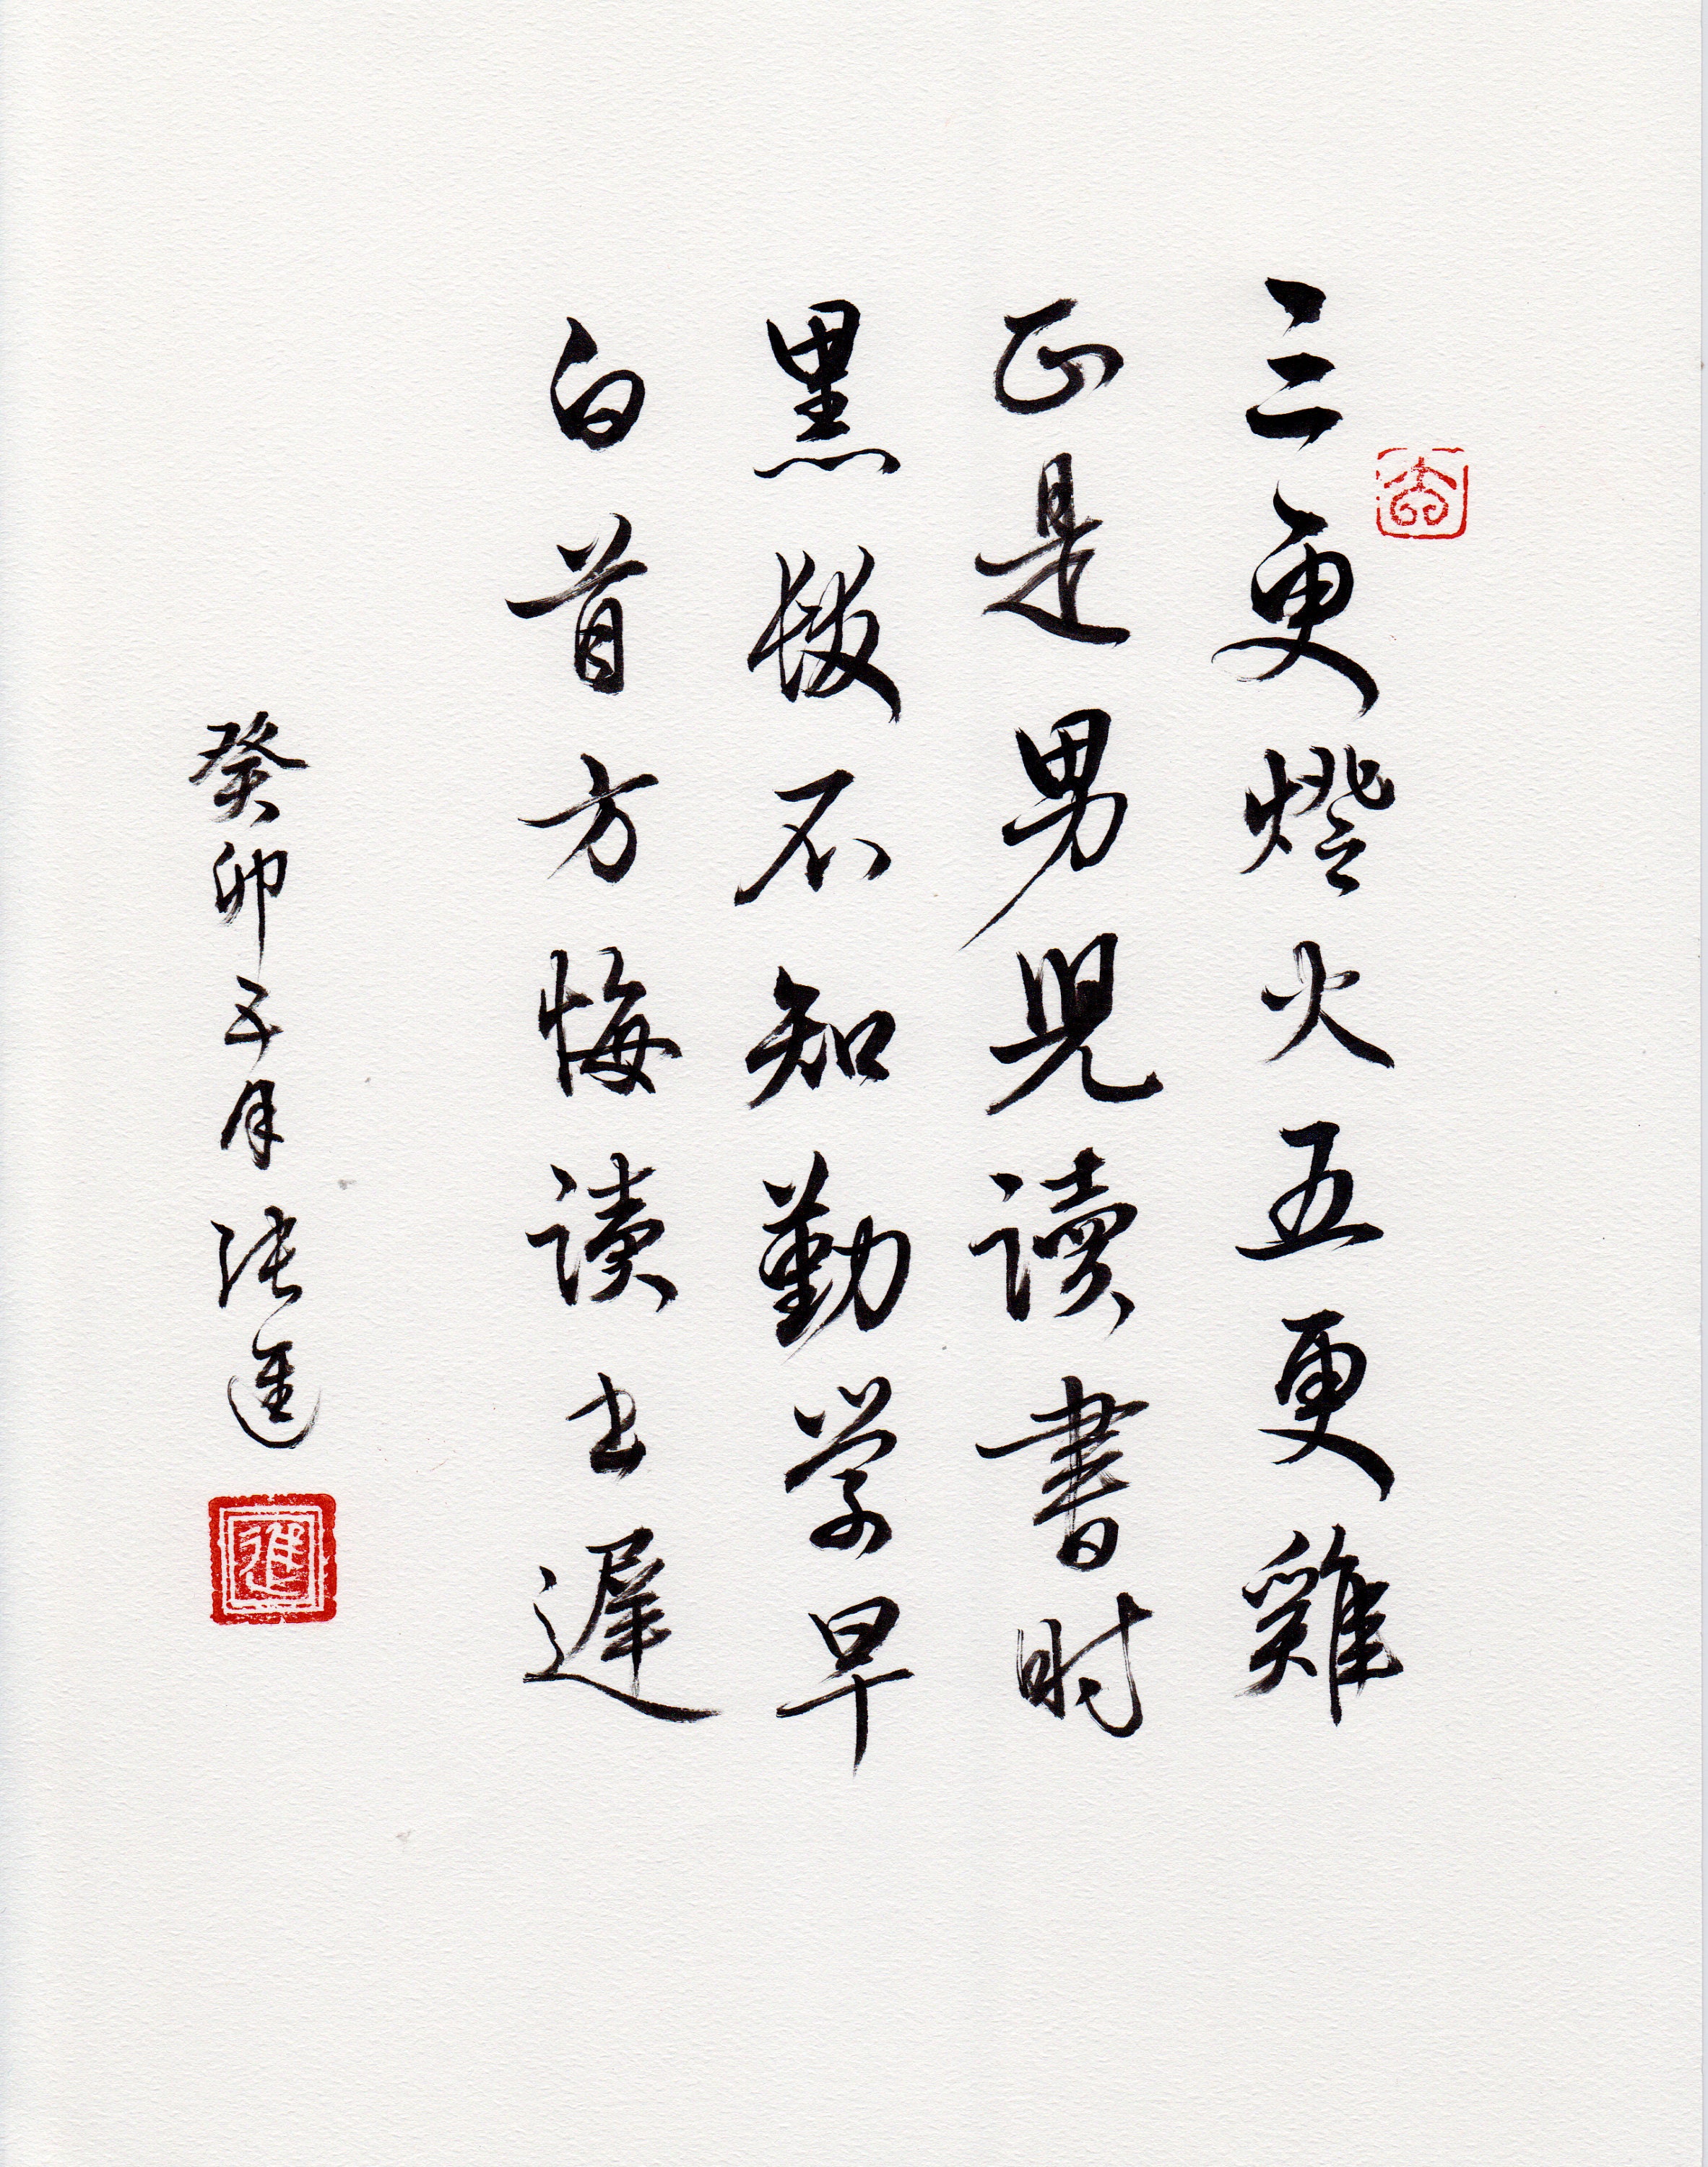 三更燈火五更雞
正是男兒讀書时
黑髮不知勤学早
白首方悔读书遲
癸卯五月张進
進